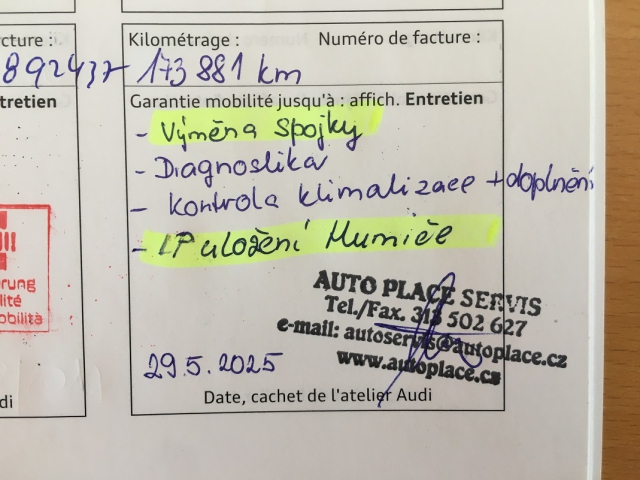 cture :
Kilométrage : Numéro de facture :
892437 173 881 km
tretien
Garantie mobilité jusqu'à : affich. Entretien
- Výměna spojky
- Diagnostika
- Kontrola klimatizace + doplnění
- LP uložení tlumiče
erung
lité
obilità
AUTO PLACE SERVIS
Tel./Fax. 313 502 627
e-mail: autoservis@autoplace.cz
www.autoplace.cz
29.5.2025
di
Date, cachet de l'atelier Audi